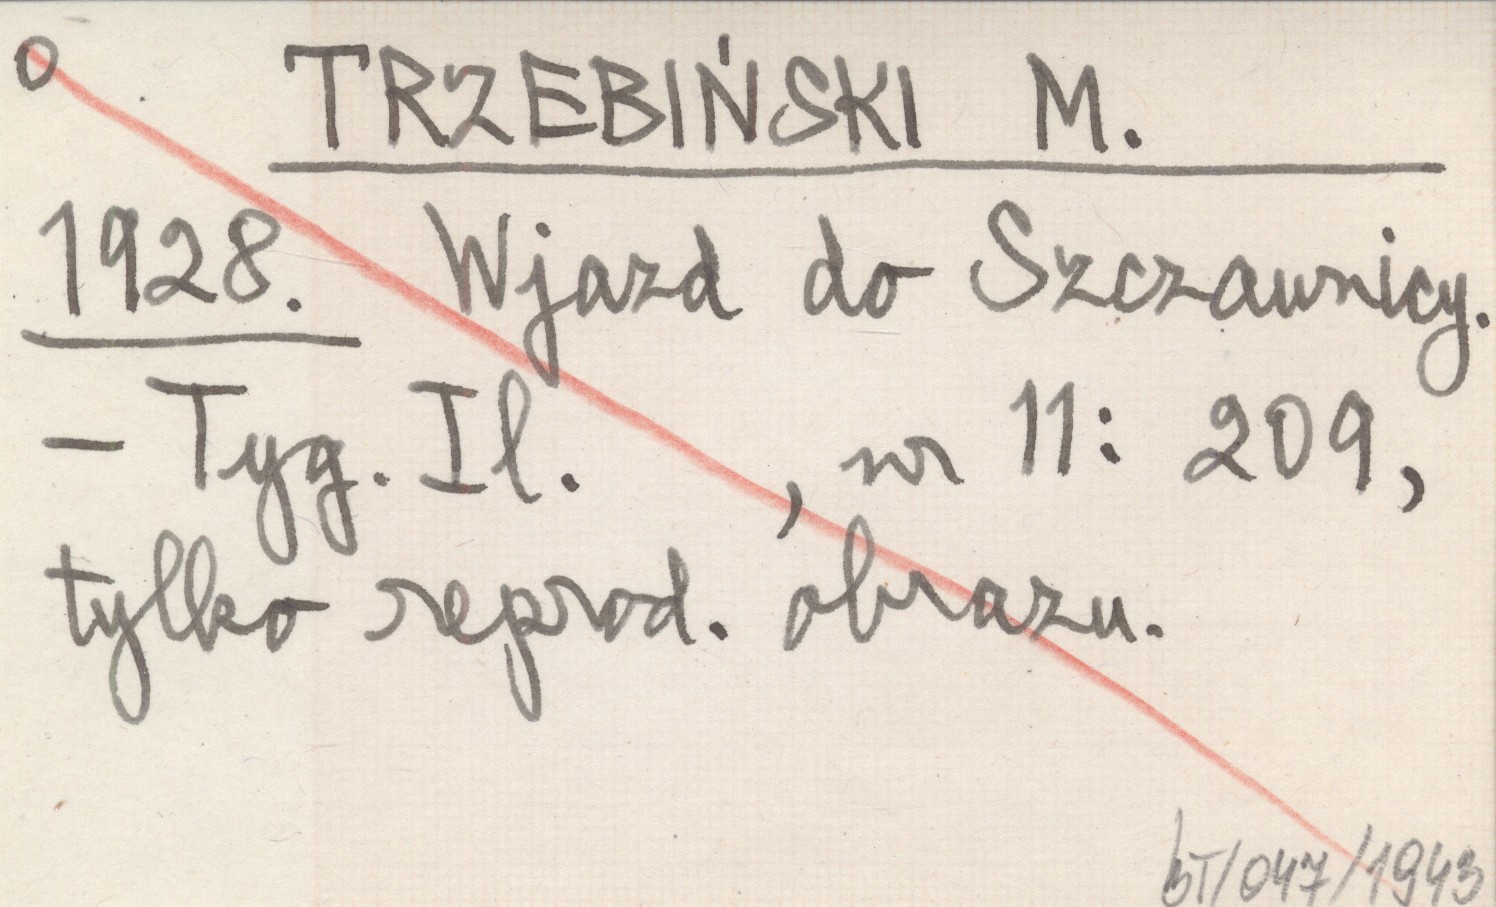 o TRZEBIŃSKI M.
1928. Wjazd do Szczawnicy.
- Tyg. Il. , nr 11: 209,
tylko reprod. obrazu.
bT/047/1943